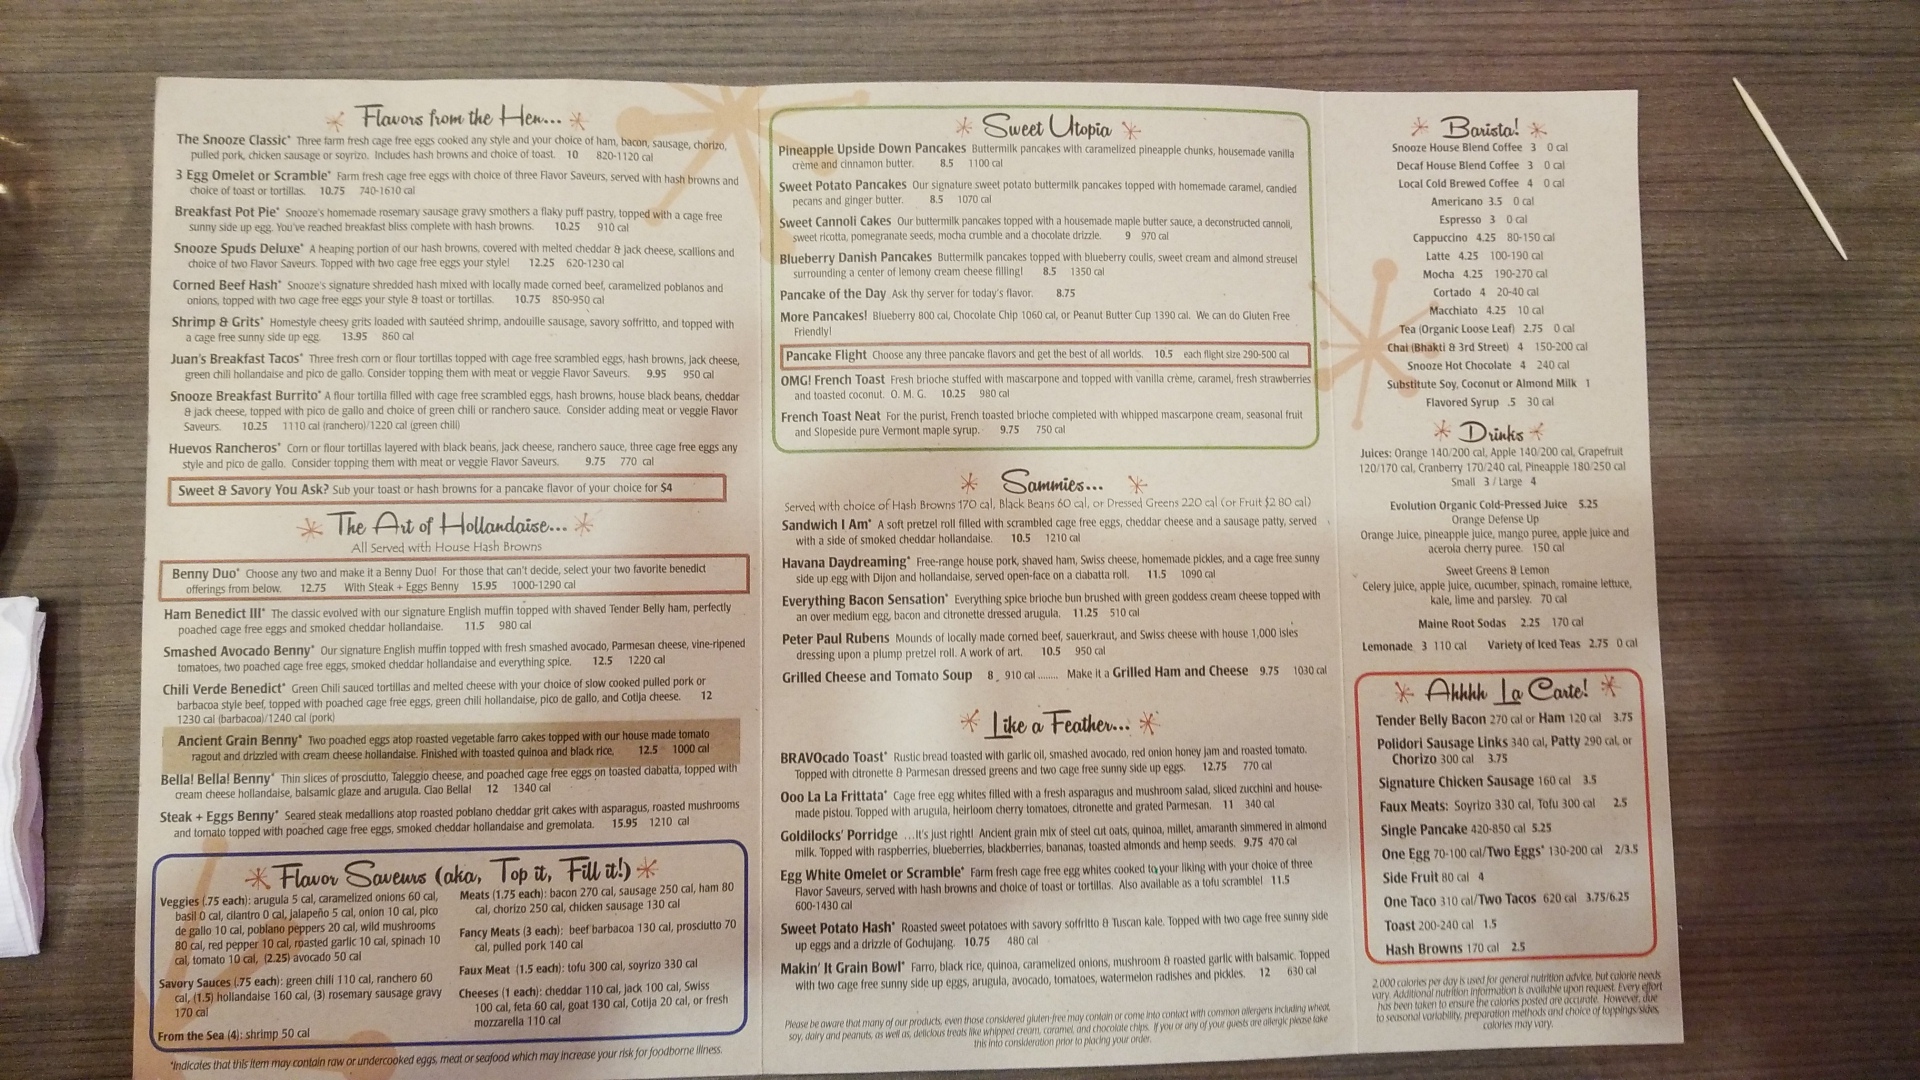 Flavors from the Hen...
The Snooze Classic* Three farm fresh cage free eggs cooked any style and your choice of ham, bacon, sausage, chorizo,
pulled pork, chicken sausage or soyrizo. Includes hash browns and choice of toast. 10 820-1120 cal
3 Egg Omelet or Scramble* Farm fresh cage free eggs with choice of three Flavor Saveurs, served with hash browns and
choice of toast or tortillas. 10.75 740-1610 cal
Breakfast Pot Pie* Snooze's homemade rosemary sausage gravy smothers a flaky puff pastry, topped with a cage free
sunny side up egg. You've reached breakfast bliss complete with hash browns. 10.25 910 cal
Snooze Spuds Deluxe* A heaping portion of our hash browns, covered with melted cheddar & jack cheese, scallions and
choice of two Flavor Saveurs. Topped with two cage free eggs your style! 12.25 620-1230 cal
Corned Beef Hash* Snooze's signature shredded hash mixed with locally made corned beef, caramelized poblanos and
onions, topped with two cage free eggs your style & toast or tortillas. 10.75 850-950 cal
Shrimp & Grits* Homestyle cheesy grits loaded with sautéed shrimp, andouille sausage, savory soffritto, and topped with
a cage free sunny side up egg. 13.95 860 cal
Juan's Breakfast Tacos* Three fresh corn or flour tortillas topped with cage free scrambled eggs, hash browns, Jack cheese,
green chili hollandaise and pico de gallo. Consider topping them with meat or veggie Flavor Saveurs. 9.95 950 cal
Snooze Breakfast Burrito* A flour tortilla filled with cage free scrambled eggs, hash browns, house black beans, cheddar
& jack cheese, topped with pico de gallo and choice of green chili or ranchero sauce. Consider adding meat or veggie Flavor
Saveurs. 10.25 1110 cal (ranchero)/1220 cal (green chili)
Huevos Rancheros* Corn or flour tortillas layered with black beans, Jack cheese, ranchero sauce, three cage free eggs any
style and pico de gallo. Consider topping them with meat or veggie Flavor Saveurs. 9.75 770 cal
Sweet & Savory You Ask? Sub your toast or hash browns for a pancake flavor of your choice for $4
The Art of Hollandaise...
All Served with House Hash Browns
Benny Duo* Choose any two and make it a Benny Duo! For those that can't decide, select your two favorite benedict
offerings from below. 12.75 With Steak + Eggs Benny 15.95 1000-1290 cal
Ham Benedict III* The classic evolved with our signature English muffin topped with shaved Tender Belly ham, perfectly
poached cage free eggs and smoked cheddar hollandaise. 11.5 980 cal
Smashed Avocado Benny* Our signature English muffin topped with fresh smashed avocado, Parmesan cheese, vine-ripened
tomatoes, two poached cage free eggs, smoked cheddar hollandaise and everything spice. 12.5 1220 cal
Chili Verde Benedict* Green Chili sauced tortillas and melted cheese with your choice of slow cooked pulled pork or
barbacoa style beef, topped with poached cage free eggs, green chili hollandaise, pico de gallo, and Cotija cheese. 12
1230 cal (barbacoa)/1240 cal (pork)
Ancient Grain Benny* Two poached eggs atop roasted vegetable farro cakes topped with our house made tomato
ragout and drizzled with cream cheese hollandaise. Finished with toasted quinoa and black rice. 12.5 1000 cal
Bella! Bella! Benny* Thin slices of prosciutto, Taleggio cheese, and poached cage free eggs on toasted ciabatta, topped with
cream cheese hollandaise, balsamic glaze and arugula. Ciao Bella! 12 1340 cal
Steak + Eggs Benny* Seared steak medallions atop roasted poblano cheddar grit cakes with asparagus, roasted mushrooms
and tomato topped with poached cage free eggs, smoked cheddar hollandaise and gremolata. 15.95 1210 cal
Flavor Saveurs (aka, Top it, Fill it!)
Veggies (.75 each): arugula 5 cal, caramelized onions 60 cal,
basil 0 cal, cilantro 0 cal, jalapeño 5 cal, onion 10 cal, pico
de gallo 10 cal, poblano peppers 20 cal, wild mushrooms
80 cal, red pepper 10 cal, roasted garlic 10 cal, spinach 10
cal, tomato 10 cal, (2.25) avocado 50 cal
Savory Sauces (.75 each): green chili 110 cal, ranchero 60
cal, (1.5) hollandaise 160 cal, (3) rosemary sausage gravy
170 cal
From the Sea (4): shrimp 50 cal
Meats (1.75 each): bacon 270 cal, sausage 250 cal, ham 80
cal, chorizo 250 cal, chicken sausage 130 cal
Fancy Meats (3 each): beef barbacoa 130 cal, prosciutto 70
cal, pulled pork 140 cal
Faux Meat (1.5 each): tofu 300 cal, soyrizo 330 cal
Cheeses (1 each): cheddar 110 cal, jack 100 cal, Swiss
100 cal, feta 60 cal, goat 130 cal, Cotija 20 cal, or fresh
mozzarella 110 cal
*Indicates that this item may contain raw or undercooked eggs, meat or seafood which may increase your risk for foodborne illness.
Sweet Utopia
Pineapple Upside Down Pancakes Buttermilk pancakes with caramelized pineapple chunks, housemade vanilla
crème and cinnamon butter. 8.5 1100 cal
Sweet Potato Pancakes Our signature sweet potato buttermilk pancakes topped with homemade caramel, candied
pecans and ginger butter. 8.5 1070 cal
Sweet Cannoli Cakes Our buttermilk pancakes topped with a housemade maple butter sauce, a deconstructed cannoli,
sweet ricotta, pomegranate seeds, mocha crumble and a chocolate drizzle. 9 970 cal
Blueberry Danish Pancakes Buttermilk pancakes topped with blueberry coulis, sweet cream and almond streusel
surrounding a center of lemony cream cheese filling! 8.5 1350 cal
Pancake of the Day Ask thy server for today's flavor. 8.75
More Pancakes! Blueberry 800 cal, Chocolate Chip 1060 cal, or Peanut Butter Cup 1390 cal. We can do Gluten Free
Friendly!
Pancake Flight Choose any three pancake flavors and get the best of all worlds. 10.5 each flight size 290-500 cal
OMG! French Toast Fresh brioche stuffed with mascarpone and topped with vanilla crème, caramel, fresh strawberries
and toasted coconut. O. M. G. 10.25 980 cal
French Toast Neat For the purist, French toasted brioche completed with whipped mascarpone cream, seasonal fruit
and Slopeside pure Vermont maple syrup. 9.75 750 cal
Sammies...
Served with choice of Hash Browns 170 cal, Black Beans 60 cal, or Dressed Greens 220 cal (or Fruit $2 80 cal)
Sandwich I Am* A soft pretzel roll filled with scrambled cage free eggs, cheddar cheese and a sausage patty, served
with a side of smoked cheddar hollandaise. 10.5 1210 cal
Havana Daydreaming* Free-range house pork, shaved ham, Swiss cheese, homemade pickles, and a cage free sunny
side up egg with Dijon and hollandaise, served open-face on a ciabatta roll. 11.5 1090 cal
Everything Bacon Sensation* Everything spice brioche bun brushed with green goddess cream cheese topped with
an over medium egg, bacon and citronette dressed arugula. 11.25 510 cal
Peter Paul Rubens Mounds of locally made corned beef, sauerkraut, and Swiss cheese with house 1,000 isles
dressing upon a plump pretzel roll. A work of art. 10.5 950 cal
Grilled Cheese and Tomato Soup 8 910 cal ........ Make it a Grilled Ham and Cheese 9.75 1030 cal
Like a Feather...
BRAVOcado Toast* Rustic bread toasted with garlic oil, smashed avocado, red onion honey jam and roasted tomato.
Topped with citronette & Parmesan dressed greens and two cage free sunny side up eggs. 12.75 770 cal
Ooo La La Frittata* Cage free egg whites filled with a fresh asparagus and mushroom salad, sliced zucchini and house-
made pistou. Topped with arugula, heirloom cherry tomatoes, citronette and grated Parmesan. 11 340 cal
Goldilocks' Porridge ...It's just right! Ancient grain mix of steel cut oats, quinoa, millet, amaranth simmered in almond
milk. Topped with raspberries, blueberries, blackberries, bananas, toasted almonds and hemp seeds. 9.75 470 cal
Egg White Omelet or Scramble* Farm fresh cage free egg whites cooked to your liking with your choice of three
Flavor Saveurs, served with hash browns and choice of toast or tortillas. Also available as a tofu scramble! 11.5
600-1430 cal
Sweet Potato Hash* Roasted sweet potatoes with savory soffritto & Tuscan kale. Topped with two cage free sunny side
up eggs and a drizzle of Gochujang. 10.75 480 cal
Makin' It Grain Bowl* Farro, black rice, quinoa, caramelized onions, mushroom & roasted garlic with balsamic. Topped
with two cage free sunny side up eggs, arugula, avocado, tomatoes, watermelon radishes and pickles. 12 630 cal
Please be aware that many of our products, even those considered gluten-free may contain or come into contact with common allergens including wheat,
soy, dairy and peanuts, as well as, delicious treats like whipped cream, caramel, and chocolate chips. If you or any of your guests are allergic please take
this into consideration prior to placing your order.
Barista!
Snooze House Blend Coffee 3 0 cal
Decaf House Blend Coffee 3 0 cal
Local Cold Brewed Coffee 4 0 cal
Americano 3.5 0 cal
Espresso 3 0 cal
Cappuccino 4.25 80-150 cal
Latte 4.25 100-190 cal
Mocha 4.25 190-270 cal
Cortado 4 20-40 cal
Macchiato 4.25 10 cal
Tea (Organic Loose Leaf) 2.75 0 cal
Chai (Bhakti & 3rd Street) 4 150-200 cal
Snooze Hot Chocolate 4 240 cal
Substitute Soy, Coconut or Almond Milk 1
Flavored Syrup .5 30 cal
Drinks
Juices: Orange 140/200 cal, Apple 140/200 cal, Grapefruit
120/170 cal, Cranberry 170/240 cal, Pineapple 180/250 cal
Small 3 / Large 4
Evolution Organic Cold-Pressed Juice 5.25
Orange Defense Up
Orange Juice, pineapple juice, mango puree, apple juice and
acerola cherry puree. 150 cal
Sweet Greens & Lemon
Celery juice, apple juice, cucumber, spinach, romaine lettuce,
kale, lime and parsley. 70 cal
Maine Root Sodas 2.25 170 cal
Lemonade 3 110 cal Variety of Iced Teas 2.75 0 cal
Ahhhh La Carte!
Tender Belly Bacon 270 cal or Ham 120 cal 3.75
Polidori Sausage Links 340 cal, Patty 290 cal, or
Chorizo 300 cal 3.75
Signature Chicken Sausage 160 cal 3.5
Faux Meats: Soyrizo 330 cal, Tofu 300 cal 2.5
Single Pancake 420-850 cal 5.25
One Egg 70-100 cal/Two Eggs* 130-200 cal 2/3.5
Side Fruit 80 cal 4
One Taco 310 cal/Two Tacos 620 cal 3.75/6.25
Toast 200-240 cal 1.5
Hash Browns 170 cal 2.5
2,000 calories per day is used for general nutrition advice, but calorie needs
vary. Additional nutrition information is available upon request. Every effort
has been taken to ensure the calories posted are accurate. However, due
to seasonal variability, preparation methods and choice of toppings/sides,
calories may vary.